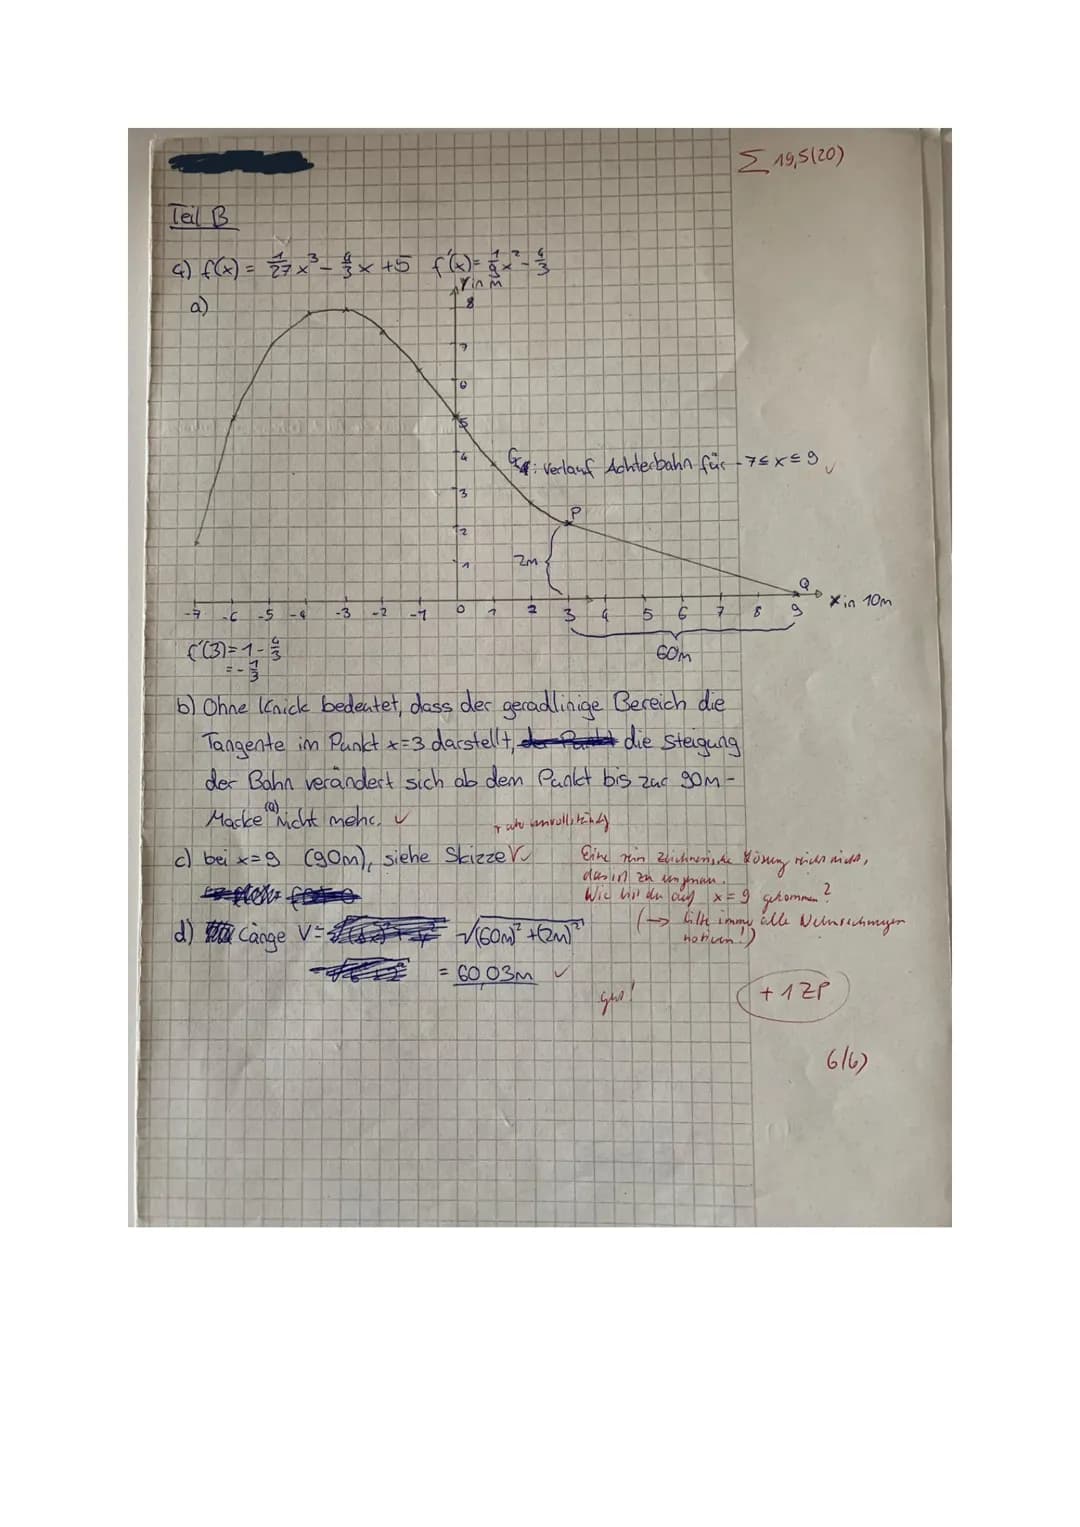 Σ 19,5(20)
Teil B
4) f(x) = 1/27 x³ - 4/3 x + 5 f'(x) = 1/9 x² - 4/3
a)
Y in m
8
7
6
5
4
Gf: Verlauf Achterbahn für -7 ≤ x ≤ 9 ✓
3
P
2
2m
1
Q
-7 -6 -5 -4 -3 -2 -1 0 1 2 3 4 5 6 7 8 9 x in 10m
60m
f'(3) = 1 - 4/3
= -1/3
b) Ohne Knick bedeutet, dass der geradlinige Bereich die
Tangente im Punkt x=3 darstellt, der Punkt die Steigung
der Bahn verändert sich ab dem Punkt bis zur 90m-
Marke (Q) nicht mehr. ✓
unvollständig
c) bei x=9 (90m), siehe Skizze ✓
Eine rein zeichnerische Lösung reicht nicht,
das ist zu ungenau.
Wie bist du auf x=9 gekommen?
(→ bitte immer alle Nebenrechnungen
notieren!)
d) Länge V = √(60m)² + (2m)²
= 60,03m ✓
gut!
+ 1 ZP
6/6)